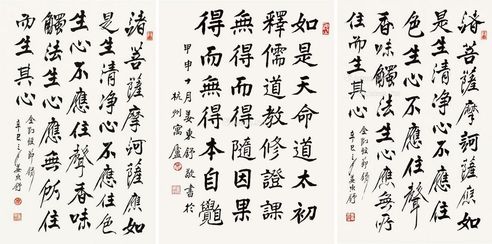 諸菩薩摩訶薩應如
是生清净心不應住色
生心不應住聲香味
觸法生心應無所住
而生其心
金剛經節錄
辛巳之 姜東舒
如是天命道太初
釋儒道教修證課
無得無得隨因果
得而無得本自覺
甲申十月姜東舒敬書於
杭州寓廬
諸菩薩摩訶薩應如
是生清净心不應住
色生心不應住聲
香味觸法生心應無所
住而生其心
金剛經節錄
辛巳之 姜東舒